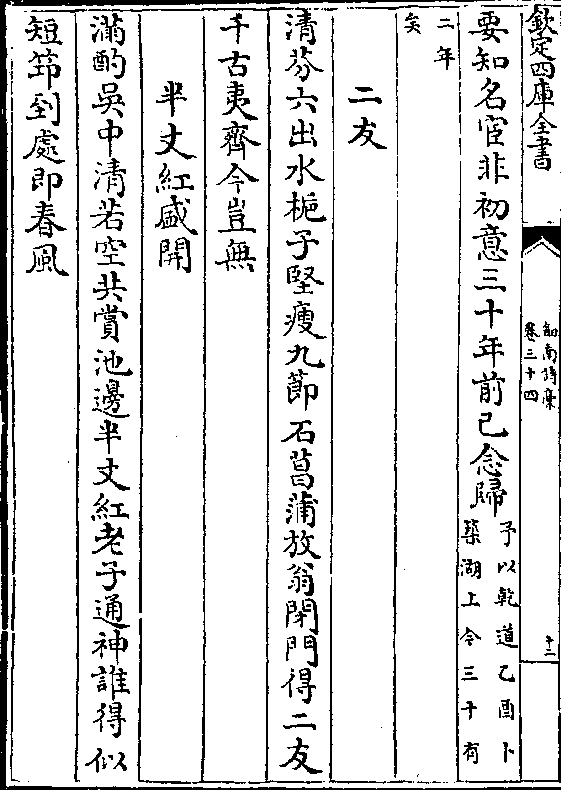 欽定四庫全書
劍南詩藁
卷三十四
十二
要知名宦非初意三十年前已念歸
予以乾道乙酉卜
築湖上今三十有
二年
矣
二友
清芬六出水梔子堅瘦九節石菖蒲放翁閉門得二友
千古夷齊今豈無
半丈紅盛開
滿酌吳中清若空共賞池邊半丈紅老子通神誰得似
短笻到處即春風